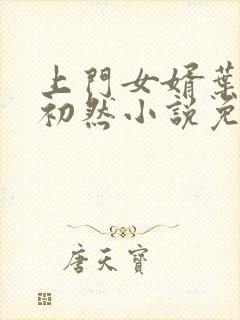 上門女婿葉
初然小說免
唐天寶